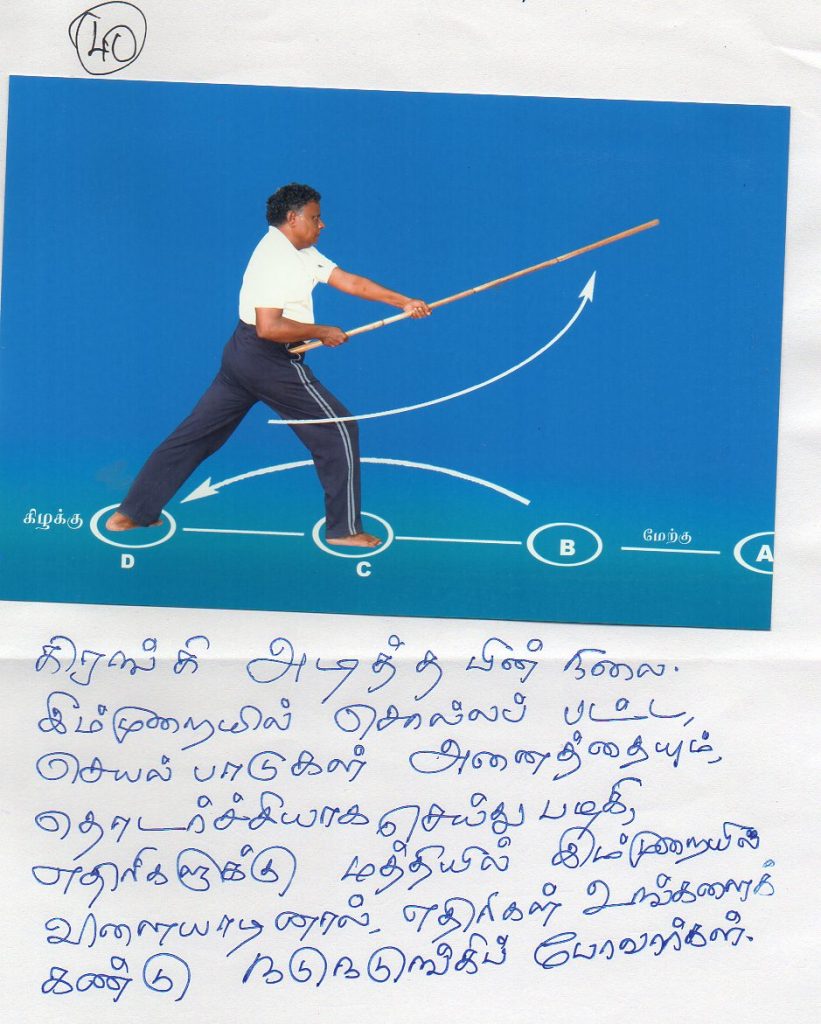 40
கிழக்கு
மேற்கு
D
C
B
A
கிரங்கி அடித்த பின் நிலை.
இம்முறையில் சொல்லப் பட்ட,
செயல் பாடுகள் அனைத்தையும்,
தொடர்ச்சியாக செய்து பழகி,
எதிரிகளுக்கு மத்தியில் இம்முறையில்
விளையாடினால், எதிரிகள் உங்களைக்
கண்டு நடுநடுங்கிப் போவார்கள்.